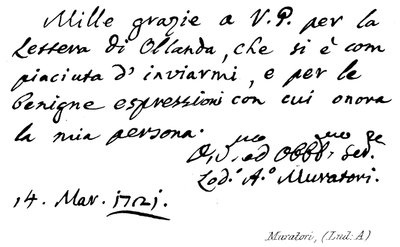 Mille grazie a V.P. per la
Lettera di Ollanda, che si è com
piaciuta d'inviarmi, e per le
benigne espressioni con cui onora
la mia persona.
ed Obbl.mo Ser.re
Lod.º A.º Muratori.
14. Mar. 1721.
Muratori, (Lud: A)